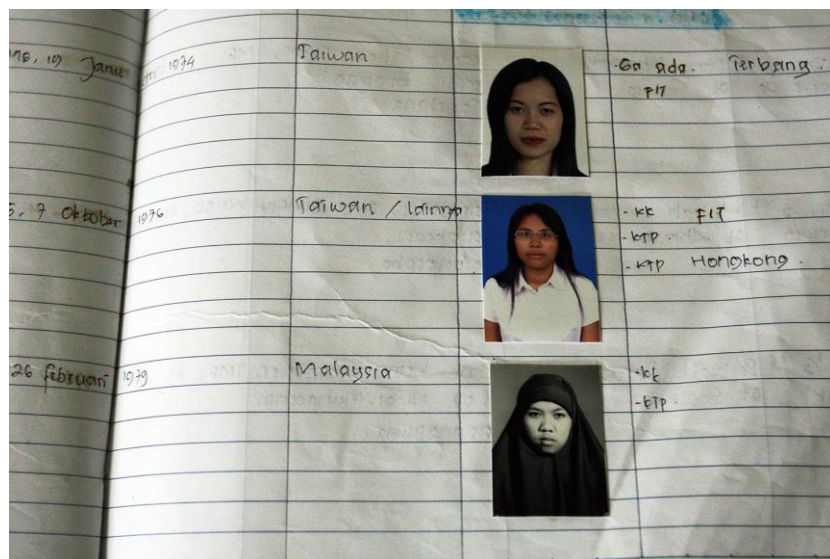 19 Januari 1974 Taiwan Ga ada. Terbang.
FIT
7 Oktober 1976 Taiwan / lainnya - KK FIT
- KTP.
- KTP Hongkong.
26 februari 1979 Malaysia - KK
- KTP.